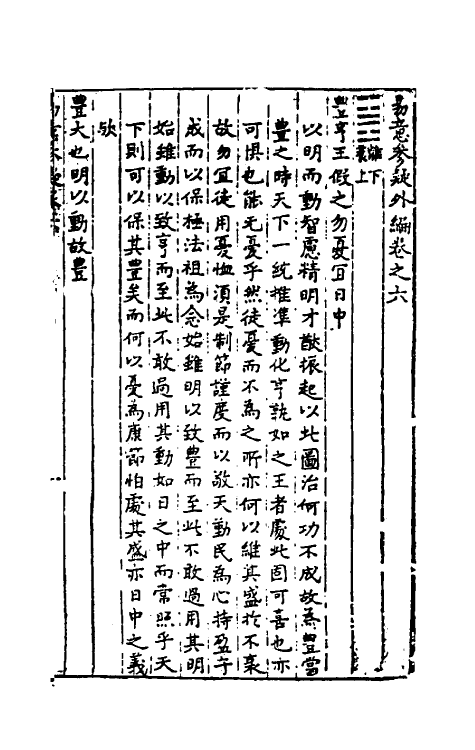 易意參疑外編卷之六
離下震上
豐亨王假之勿憂宜日中
以明而動智慮精明才猷振起以此圖治何功不成故為豐當
豐之時天下一統推準動化亨孰如之王者處此固可喜也亦
可懼也能无憂乎然徒憂而不為之所亦何以維其盛於不衰
故勿宜徒用憂恤須是制節謹度而以敬天勤民為心持盈守
成而以保極法祖為念始雖明以致豐而至此不敢過用其明
始雖動以致亨而至此不敢過用其動如日之中而常照乎天
下則可以保其豐矣而何以憂為康節怕處其盛亦日中之義
歟
豐大也明以動故豐